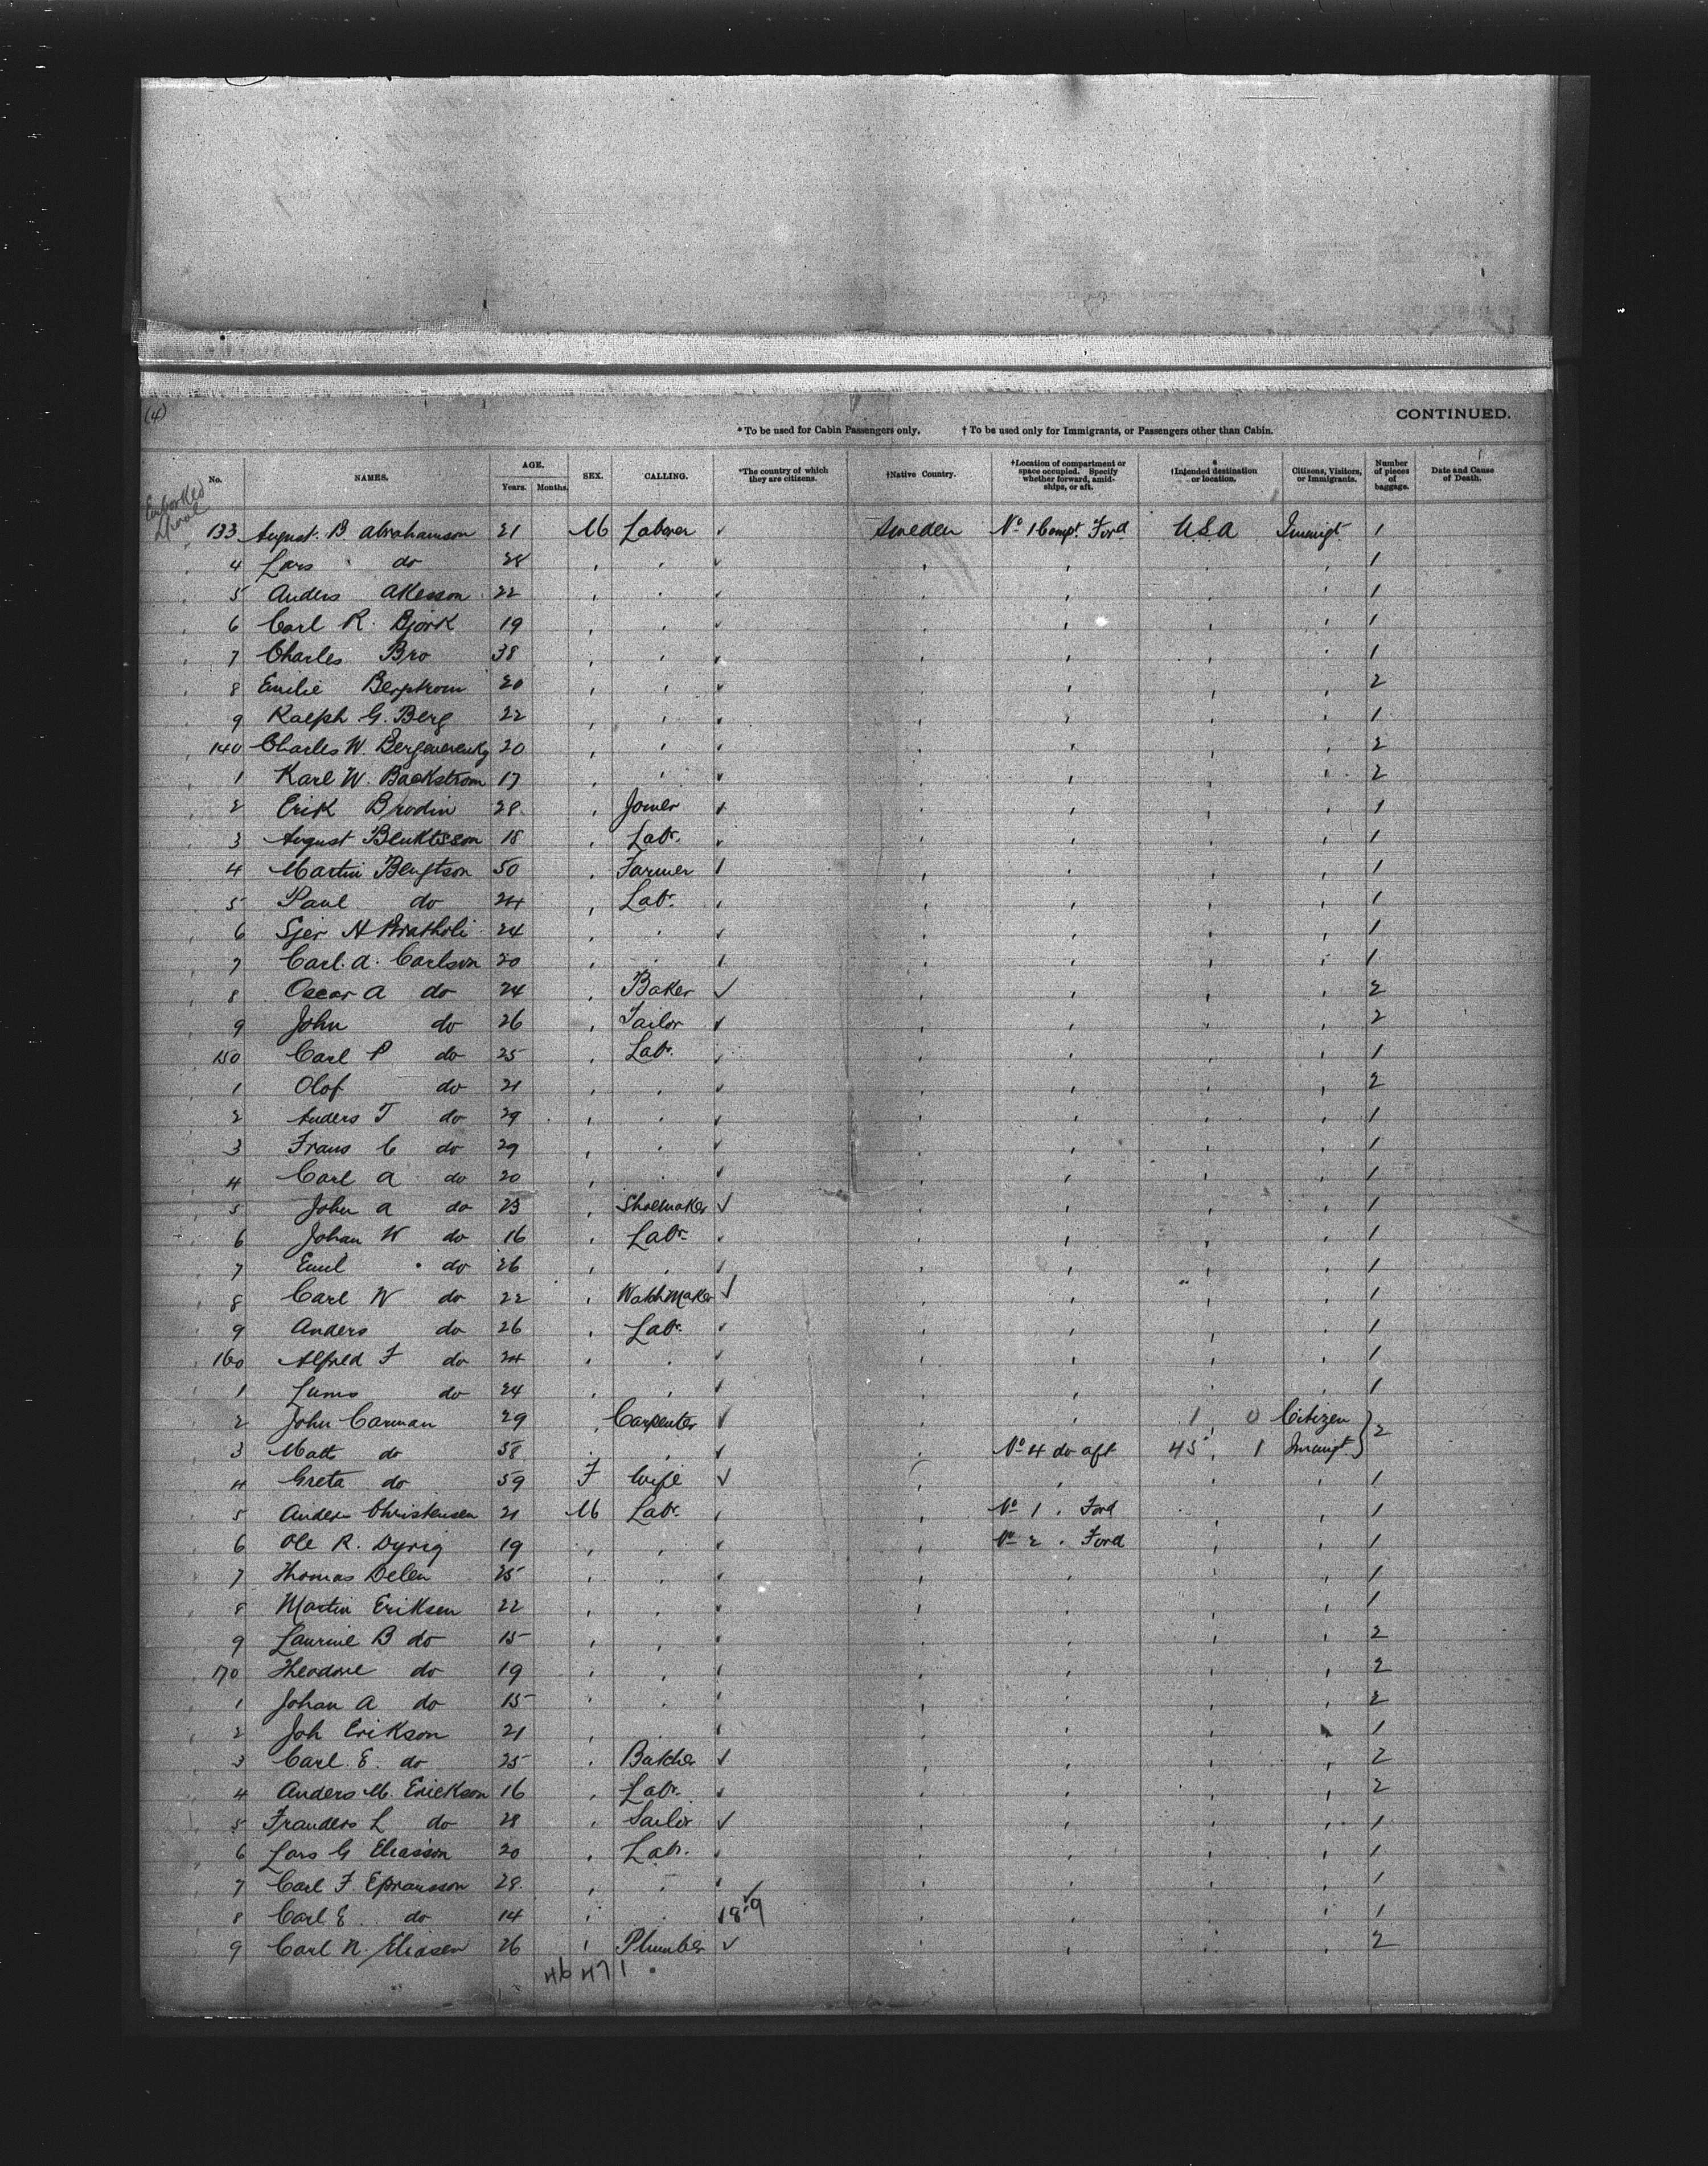 (4)
CONTINUED.
* To be used for Cabin Passengers only. † To be used only for Immigrants, or Passengers other than Cabin.
No. NAMES. AGE. Years. Months. SEX. CALLING. *The country of which they are citizens. †Native Country. †Location of compartment or space occupied. Specify whether forward, amidships, or aft. †Intended destination or location. Citizens, Visitors, or Immigrants. Number of pieces of baggage. Date and Cause of Death.
Embarked
133 August. B Abrahamson 21 M Laborer ✓ Sweden No 1 Compt. Ford USA Immigt 1
4 Lars do 28 1
5 Anders Akesson 22 1
6 Carl R. Bjork 19 1
7 Charles Bro 38 1
8 Emilie Bergstrom 20 2
9 Ralph G. Berg 22 1
140 Charles W. 20 2
1 Karl W. Backstrom 17 2
2 Erik Brodin 28 Joiner 1
3 August 18 Labr. 1
4 Martin Bengtson 50 Farmer 1
5 Paul do 24 Labr. 1
6 24 1
7 Carl. A. Carlson 20 1
8 Oscar A do 24 Baker ✓ 2
9 John do 26 Tailor 2
150 Carl P do 25 Labr. 1
1 Olof do 21 2
2 Anders T do 29 1
3 Frans C do 29 1
4 Carl A do 20 1
5 John A do 23 Shoemaker ✓ 1
6 Johan W do 16 Labr. 1
7 Emil do 26 1
8 Carl W do 22 Watchmaker ✓ 1
9 Anders do 26 Labr. 1
160 Alfred F do 24 1
1 do 24 1
2 John Carman 29 Carpenter ✓ 1 0 Citizen } 2
3 Matt do 58 No 4 do aft 45 1 Immigt }
4 Greta do 59 F Wife ✓ 1
5 Anders Christensen 21 M Labr. No 1 Ford 1
6 Ole R. Dyrig 19 No 2 Ford 1
7 Thomas Delen 25 1
8 Martin Eriksen 22 1
9 B do 15 2
170 Theodore do 19 2
1 Johan A do 15 2
2 Joh Erikson 21 1
3 Carl E. do 25 Butcher ✓ 2
4 Anders M. Erickson 16 Labr. 2
5 L do 28 ✓ 1
6 Lars G Eliasson 20 Labr. 1
7 Carl F. 28 1
8 Carl E do 14 1
9 Carl N. Eliasen 26 Plumber ✓ 2
46 47 1